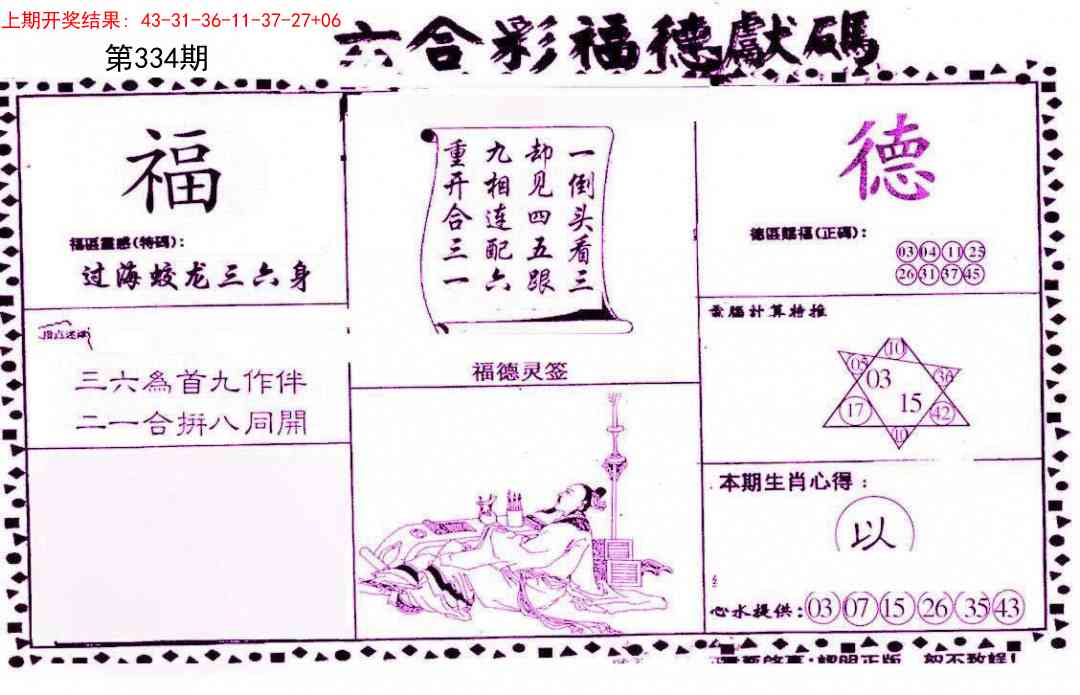 上期开奖结果：43-31-36-11-37-27+06
第334期
六合彩福德獻碼
福
福區靈感(特碼)：
过海蛟龙三六身
三六為首九作伴
二一合拼八同開
一倒头看三
却见四五跟
九相连配六
重开合三一
福德灵签
德
德區賜福(正碼)：
03 04 11 25
26 31 37 45
電腦計算特推
10
05 36
03
17 15 42
10
本期生肖心得：
以
心水提供：03 07 15 26 35 43